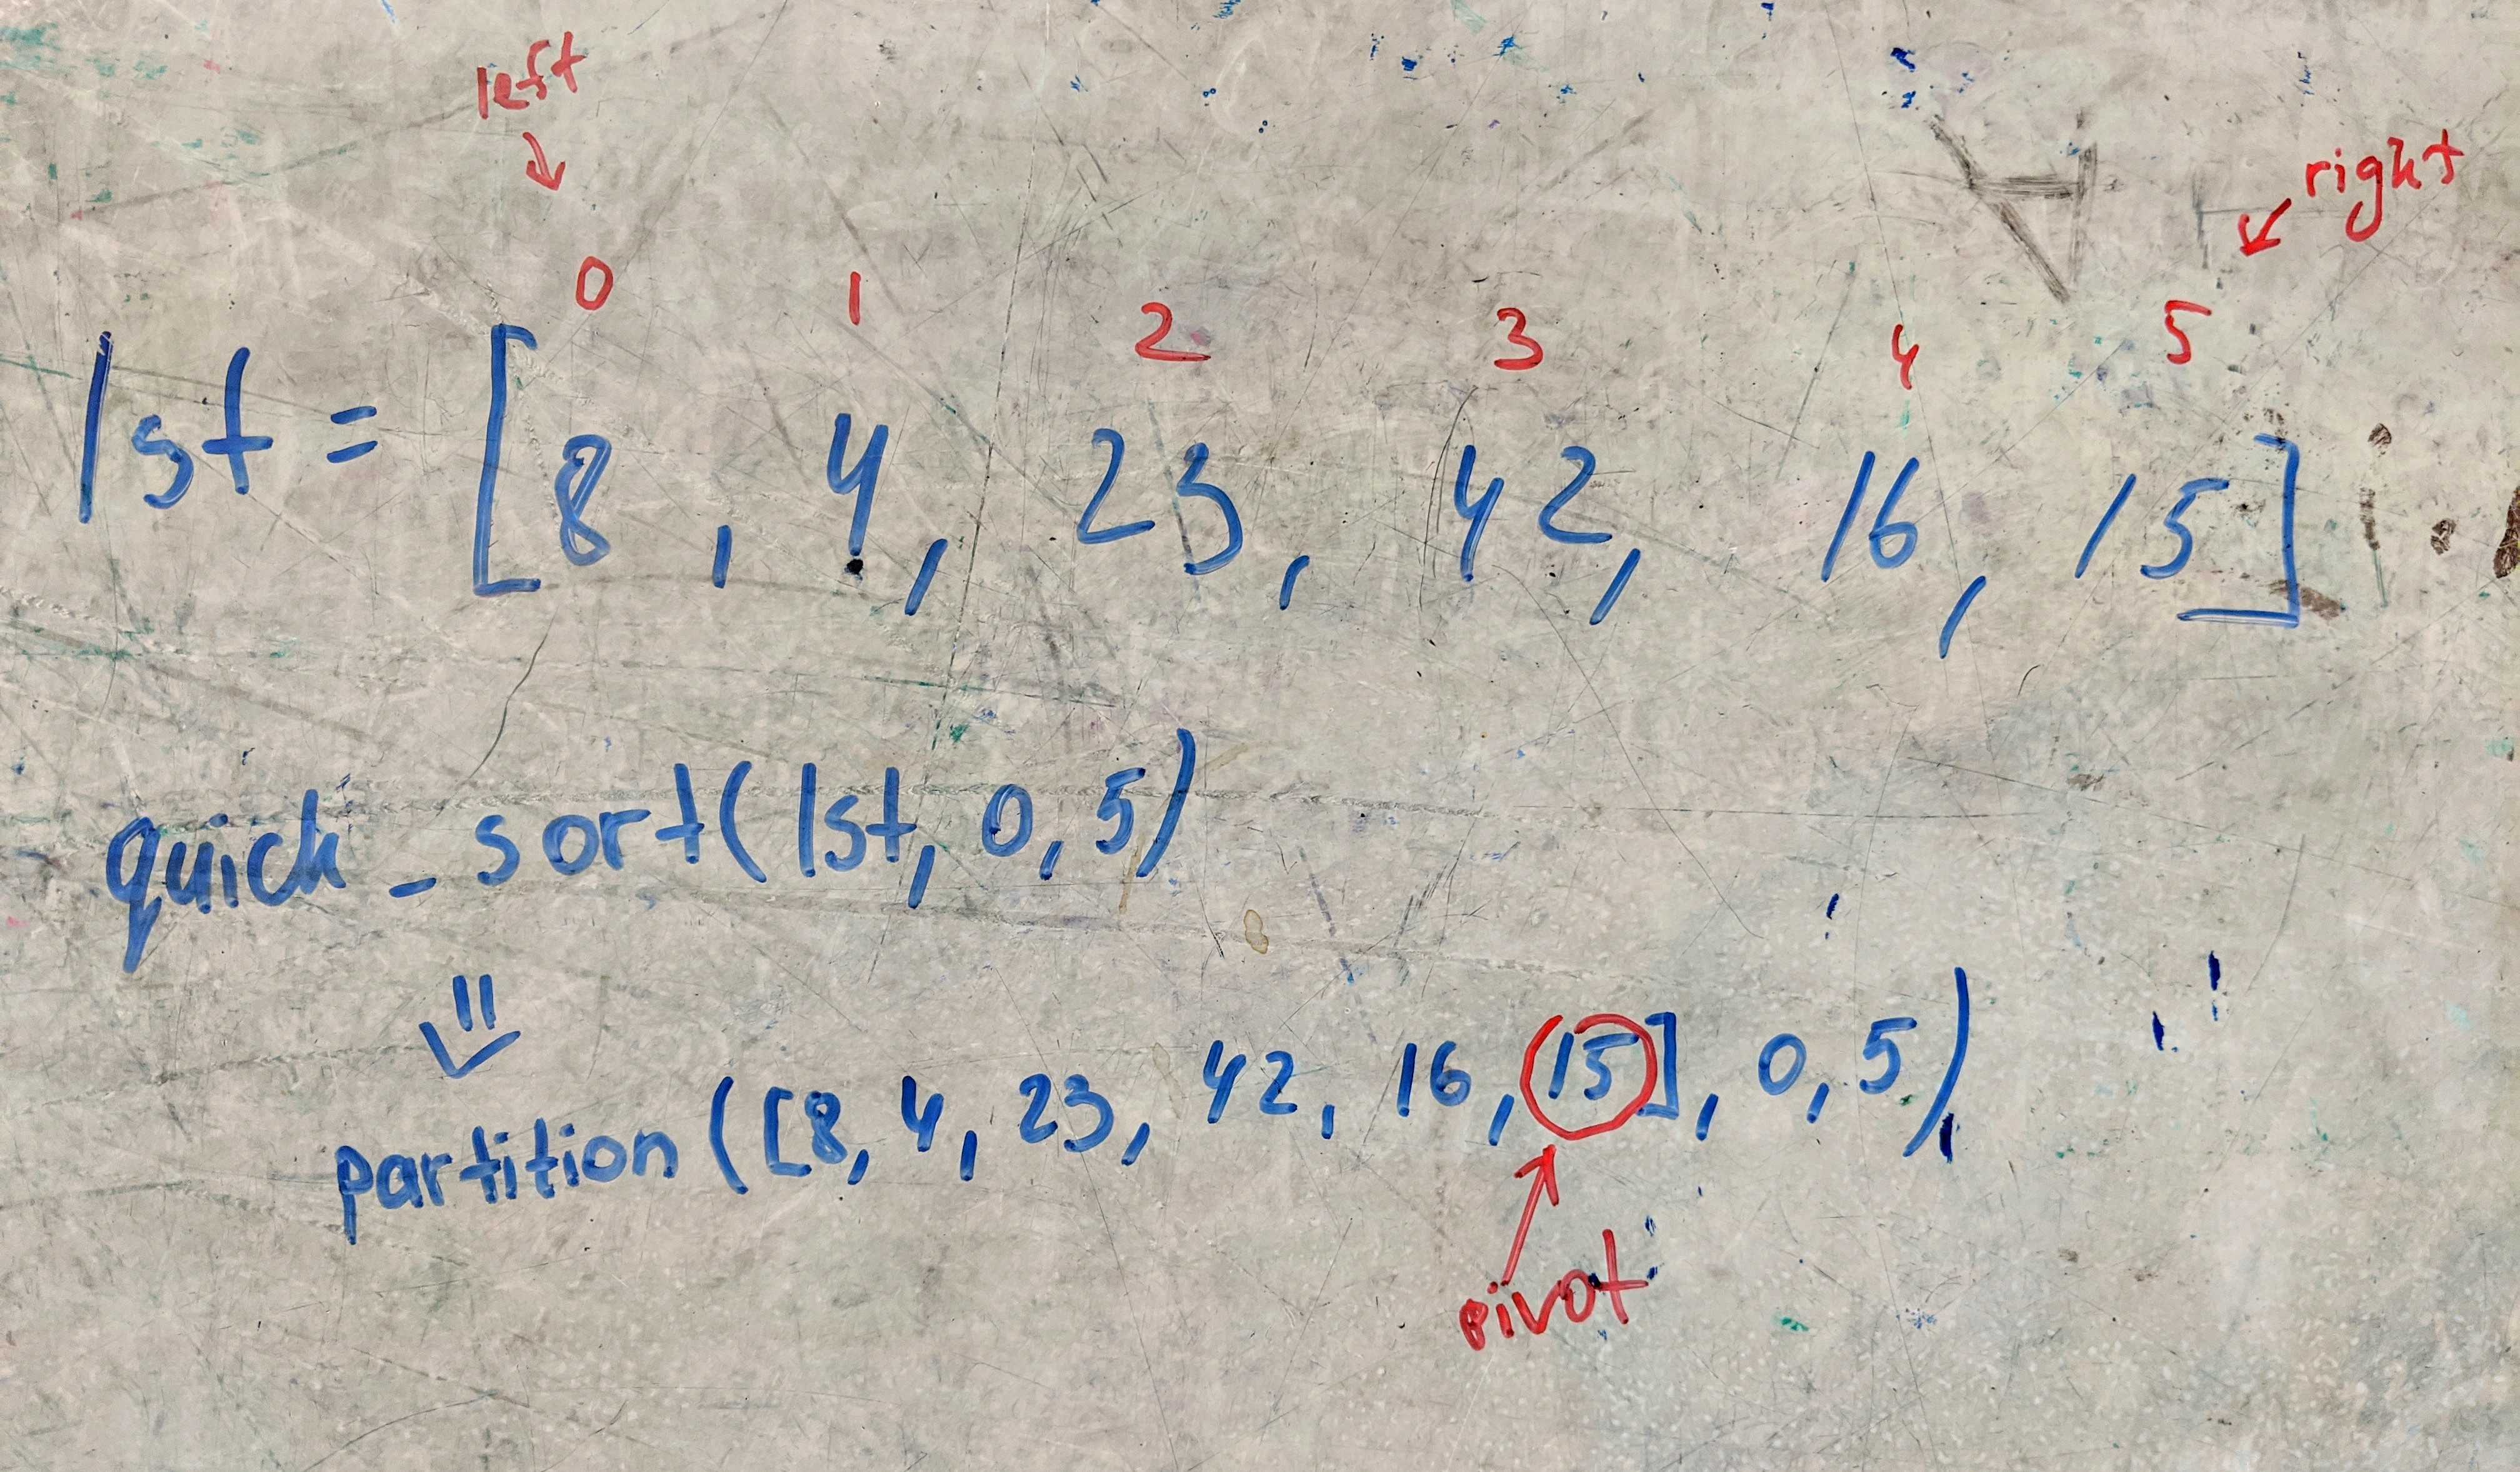 left
right
0 1 2 3 4 5
lst = [8, 4, 23, 42, 16, 15]
quick_sort(lst, 0, 5)
partition([8, 4, 23, 42, 16, 15], 0, 5)
pivot